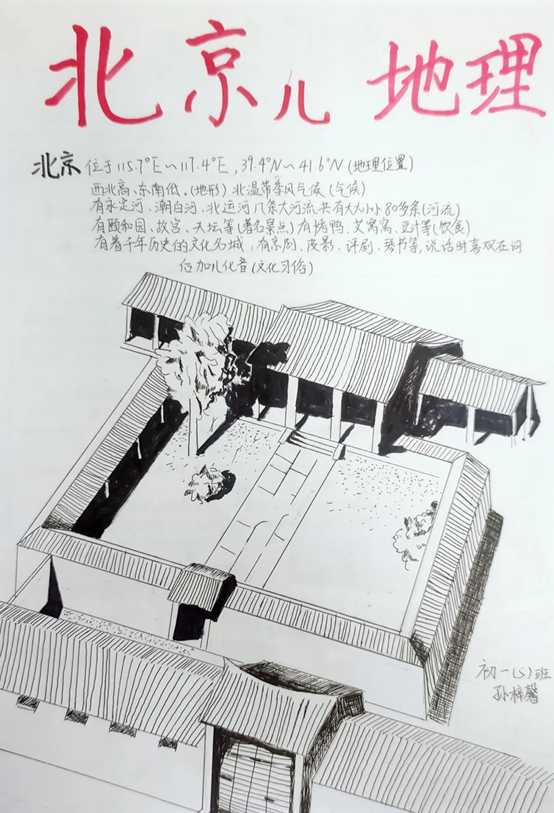 北京儿 地理
北京 位于115.7°E~117.4°E,39.4°N~41.6°N(地理位置)
西北高、东南低.(地形) 北温带季风气候(气候)
有永定河、潮白河、北运河几条大河流共有大大小小80多条(河流)
有颐和园、故宫、天坛等(著名景点)有烤鸭、艾窝窝、豆汁等(饮食)
有着千年历史的文化名城,有京剧、皮影、评剧、琴书等,说话时喜欢在词
后加儿化音(文化习俗)
初一(5)班
孙梓馨